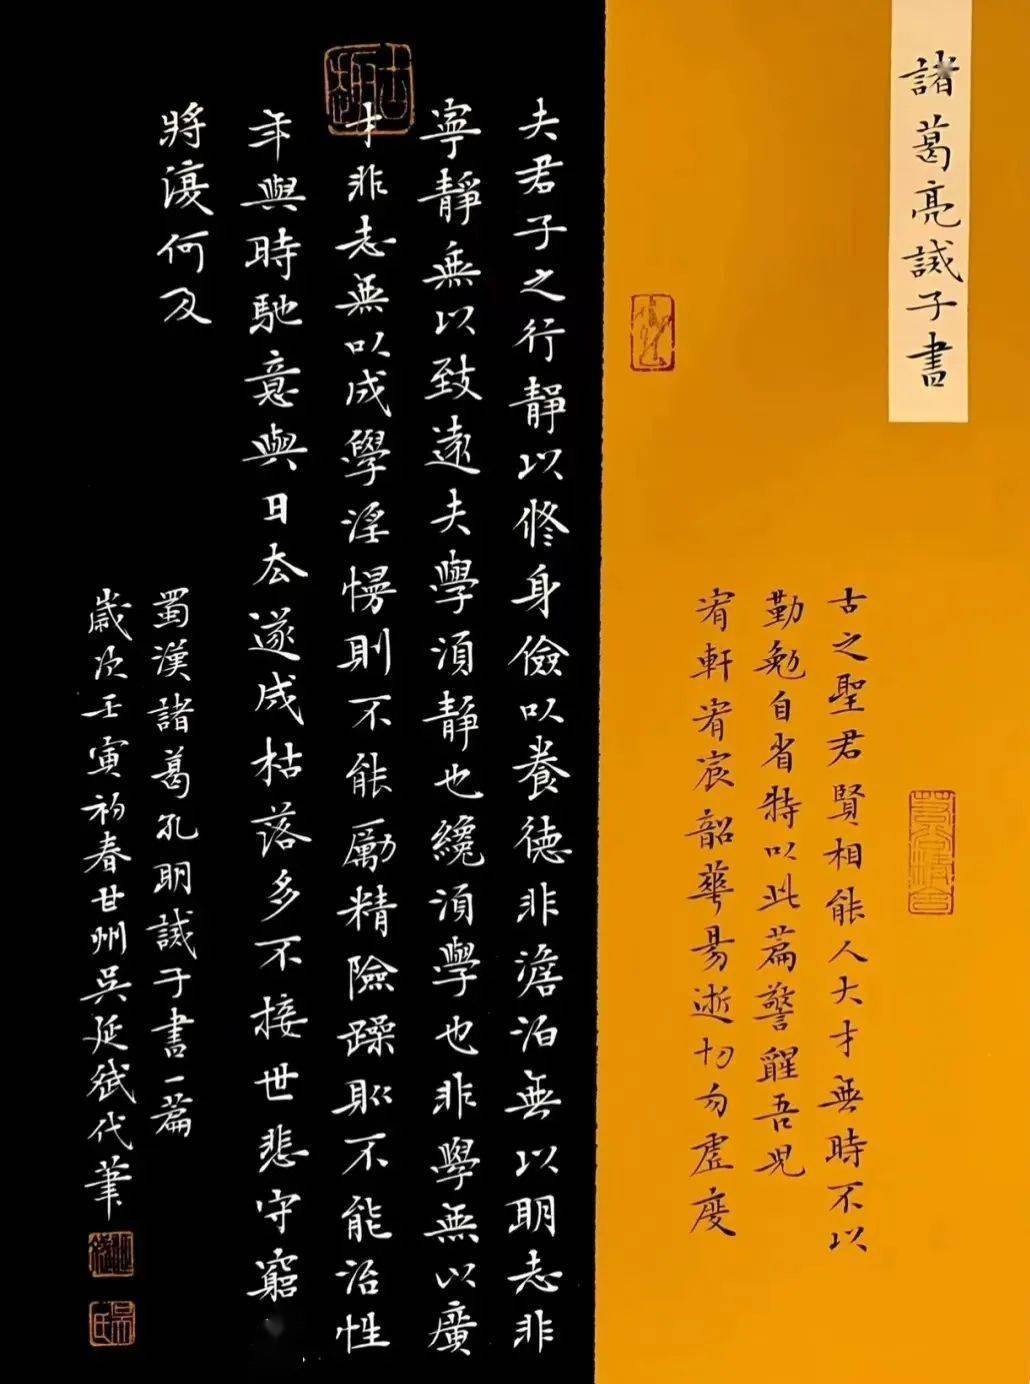 諸葛亮誡子書
古之聖君賢相能人大才無時不以
勤勉自省特以此篇警醒吾兒
宥軒宥宸韶華易逝切勿虛度
夫君子之行靜以修身儉以養德非澹泊無以明志非
寧靜無以致遠夫學須靜也纔須學也非學無以廣
才非志無以成學淫慢則不能勵精險躁則不能治性
年與時馳意與日去遂成枯落多不接世悲守窮
將復何及
蜀漢諸葛孔明誡子書一篇
歲次壬寅初春甘州吳延斌代筆